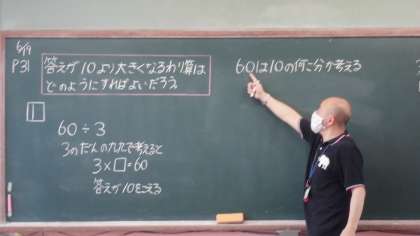 5/19
P31
答えが10より大きくなるわり算は
どのようにすればよいだろう
1
60÷3
3のだんの九九で考えると
3×□=60
答えが10をこえる
60は10の何こ分か考える